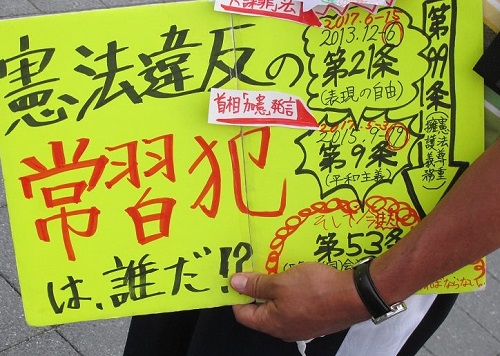 憲法違反の
常習犯
は、誰だ!?
共謀罪法
2017.6-15
2013.12-6
第21条
(表現の自由)
首相「加憲」発言
第9条
(平和主義)
第53条
第99条
(憲法尊重
擁護義務)